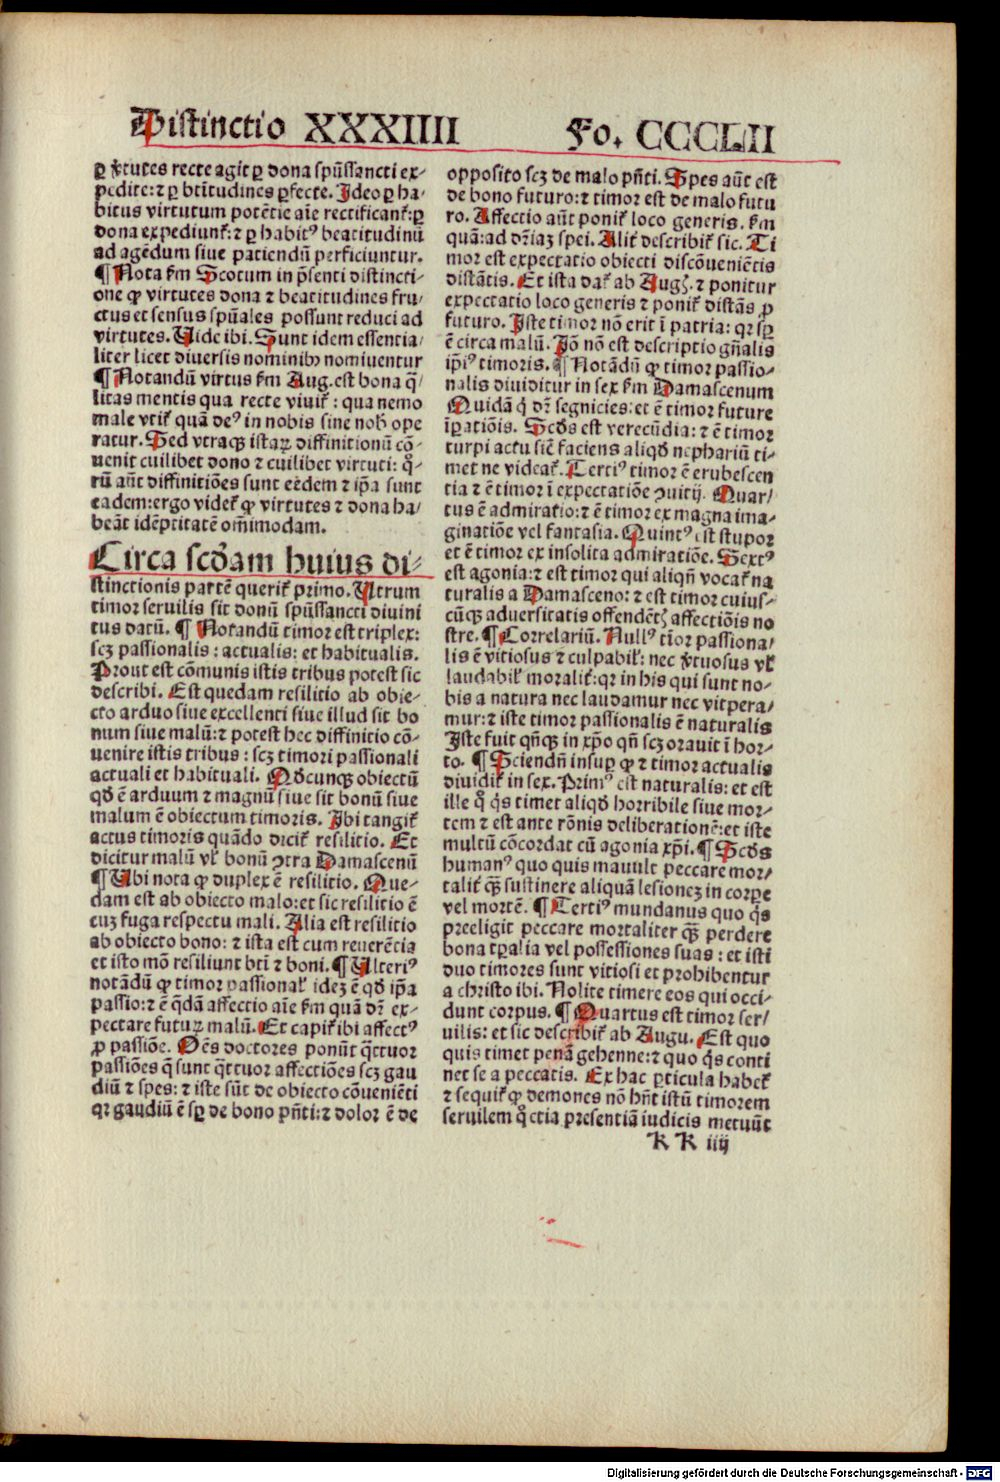 Distinctio XXXIIII Fo. CCCLII
ꝑ v̓tutes recte agit ꝑ dona spūssancti ex⸗
pedite: ⁊ ꝑ btītudines ꝑfecte. Ideo ꝑ ha⸗
bitus virtutum potētie aīe rectificant᷑: ꝑ
dona expediunt᷑: ⁊ ꝑ habitꝰ beatitudinū
ad agēdum siue patiendū perficiuntur.
¶ Nota s̄m Scotum in p̄senti distincti⸗
one ꝙ virtutes dona ⁊ beatitudines fru⸗
ctus et sensus spūales possunt reduci ad
virtutes. Vide ibi. Sunt idem essentia⸗
liter licet diuersis nominibꝰ nominentur
¶ Notandū virtus s̄m Aug. est bona q̄⸗
litas mentis qua recte viuit᷑: qua nemo
male vtit᷑ quā deꝰ in nobis sine nobꝭ ope
ratur. Sed vtraqꝫ istaꝝ diffinitionū cō⸗
uenit cuilibet dono ⁊ cuilibet virtuti: qͦ⸗
rū aūt diffinitiōes sunt eedem ⁊ ip̄a sunt
eadem: ergo videt᷑ ꝙ virtutes ⁊ dona ha⸗
beāt idēptitatē om̄imodam.
Circa scd̄am huius di⸗
stinctionis partē querit᷑ primo. Vtrum
timor seruilis sit donū spūssancti diuini
tus datū. ¶ Notandū timor est triplex:
scꝫ passionalis: actualis: et habitualis.
Prout est cōmunis istis tribus potest sic
describi. Est quedam resilitio ab obie⸗
cto arduo siue excellenti siue illud sit bo
num siue malū: ⁊ potest hec diffinitio cō⸗
uenire istis tribus: scꝫ timori passionali
actuali et habituali. Qd̄cunqꝫ obiectū
qd̄ ē arduum ⁊ magnū siue sit bonū siue
malum ē obiectum timoris. Ibi tangit᷑
actus timoris quādo dicit᷑ resilitio. Et
dicitur malū vl̓ bonū ꝯtra Damascenū
¶ Vbi nota ꝙ duplex ē resilitio. Que⸗
dam est ab obiecto malo: et sic resilitio ē
cuꝫ fuga respectu mali. Alia est resilitio
ab obiecto bono: ⁊ ista est cum reuerētia
et isto mō resiliunt btī ⁊ boni. ¶ Vlteriꝰ
notādū ꝙ timor passional̓ ideꝫ ē qd̄ ip̄a
passio: ⁊ ē q̄dā affectio aīe s̄m quā dr̄ ex⸗
pectare futuꝝ malū. Et capit᷑ ibi affectꝰ
ꝓ passiōe. Oēs doctores ponūt q̄ttuor
passiōes q̄ sunt q̄ttuor affectiōes scꝫ gau
diū ⁊ spes: ⁊ iste sūt de obiecto cōueniēti
qꝛ gaudiū ē sꝑ de bono pn̄ti: ⁊ dolor ē de
opposito scꝫ de malo pn̄ti. Spes aūt est
de bono futuro: ⁊ timor est de malo futu
ro. Affectio aūt ponit᷑ loco generis. s̄m
quā: ad dr̄iaꝫ spei. Alit̓ describit᷑ sic. Ti
mor est expectatio obiecti discōueniētis
distātis. Et ista dat᷑ ab Augꝭ. ⁊ ponitur
expectatio loco generis ⁊ ponit᷑ distās ꝓ
futuro. Iste timor nō erit ī patria: qꝛ sꝑ
ē circa malū. Iō nō est descriptio gn̄alis
ip̄iꝰ timoris. ¶ Notādū ꝙ timor passio⸗
nalis diuiditur in sex s̄m Damascenum
Quidā q̇ dr̄ segnicies: et ē timor future
oꝑatiōis. Scd̄s est verecūdia: ⁊ ē timor
turpi actu siē faciens aliqd̄ nephariū ti⸗
met ne videat᷑. Tertiꝰ timor ē erubescen
tia ⁊ ē timor ī expectatiōe ꝯuitij. Quar⸗
tus ē admiratio: ⁊ ē timor ex magna ima⸗
ginatiōe vel fantasia. Quintꝰ est stupor
et ē timor ex insolita admiratiōe. Sextꝰ
est agonia: ⁊ est timor qui aliqn̄ vocat᷑ na
turalis a Damasceno: ⁊ est timor cuius⸗
cūqꝫ aduersitatis offendētꝭ affectiōis no
stre. ¶ Correlariū. Nullꝰ tīor passiona⸗
lis ē vitiosus ⁊ culpabil̓: nec v̓tuosus vl̓
laudabil̓ moralit̓: qꝛ in his qui sunt no⸗
bis a natura nec laudamur nec vitpera⸗
mur: ⁊ iste timor passionalis ē naturalis
Iste fuit qn̄qꝫ in xp̄o qn̄ scꝫ orauit ī hor⸗
to. ¶ Sciendū insuꝑ ꝙ ⁊ timor actualis
diuidit᷑ in sex. Primꝰ est naturalis: et est
ille qͦ q̇s timet aliqd̄ horribile siue mor⸗
tem ⁊ est ante rōnis deliberationē: et iste
multū cōcordat cū agonia xp̄i. ¶ Scd̄s
humanꝰ quo quis mauult peccare mor⸗
talit̓ qꝫ̄ sustinere aliquā lesioneꝫ in corꝑe
vel mortē. ¶ Tertiꝰ mundanus quo q̇s
preeligit peccare mortaliter qꝫ̄ perdere
bona tꝑalia vel possessiones suas: et isti
duo timores sunt vitiosi et prohibentur
a christo ibi. Nolite timere eos qui occi⸗
dunt corpus. ¶ Quartus est timor ser⸗
uilis: et sic describit᷑ ab Augu. Est quo
quis timet penā gehenne: ⁊ quo q̇s conti
net se a peccatis. Ex hac ꝑticula habet᷑
⁊ sequit᷑ ꝙ demones nō hn̄t istū timorem
seruilem qͦ etiā presentiā iudicis metuūt
K K iiij
Digitalisierung gefördert durch die Deutsche Forschungsgemeinschaft - DFG